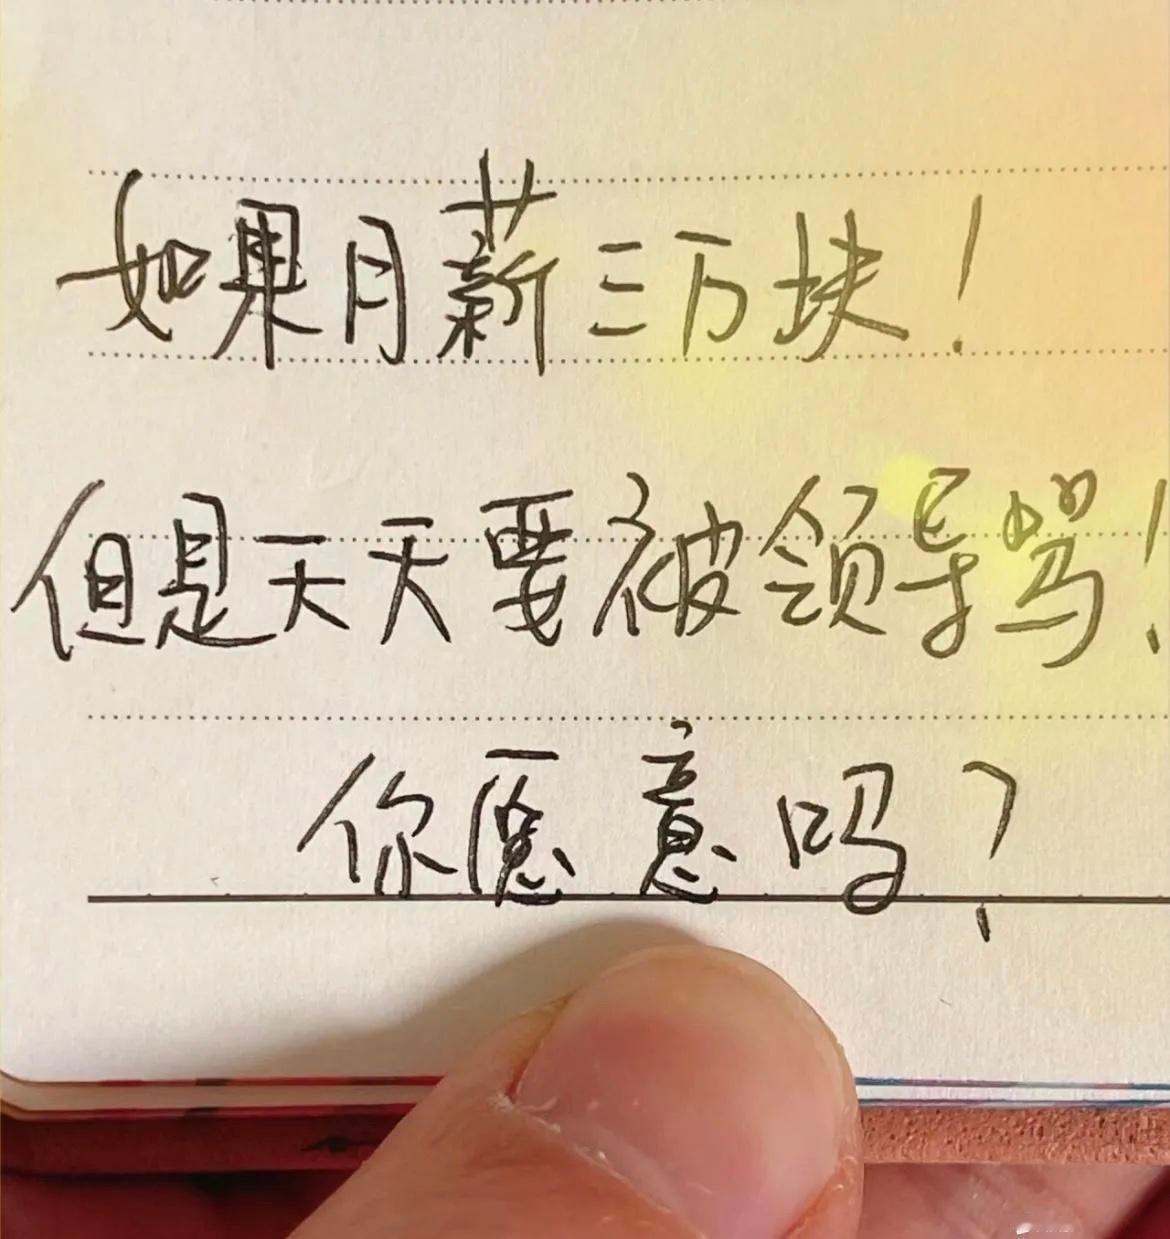 如果月薪三万块！
但是天天要被领导骂！
你愿意吗？